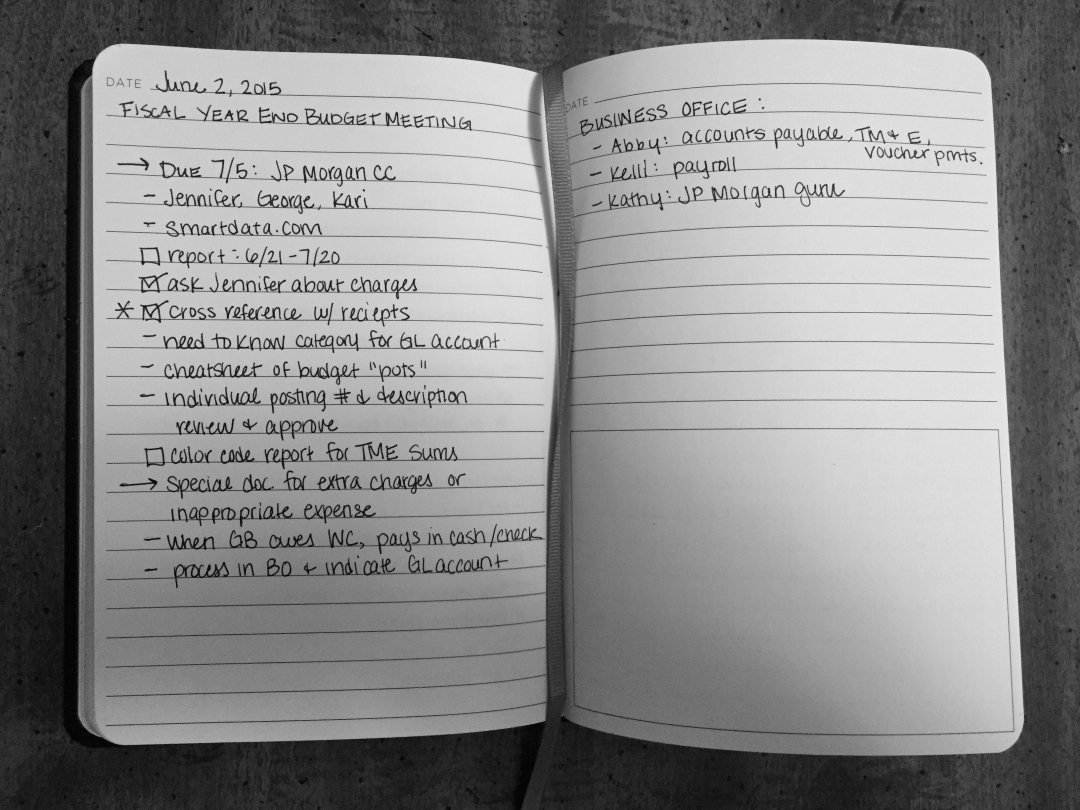 DATE June 2, 2015
FISCAL YEAR END BUDGET MEETING
→ DUE 7/5: JP Morgan CC
- Jennifer, George, Kari
- smartdata.com
☐ report: 6/21-7/20
☑ ask Jennifer about charges
* ☑ cross reference w/ reciepts
- need to know category for GL account
- cheatsheet of budget "pots"
- individual posting # & description
review & approve
☐ color code report for TME sums
→ special doc for extra charges or
inappropriate expense
- when GB owes WC, pays in cash/check
- process in BO & indicate GL account
DATE
BUSINESS OFFICE:
- Abby: accounts payable, TM & E,
voucher pmts.
- Kelli: payroll
- Kathy: JP Morgan guru